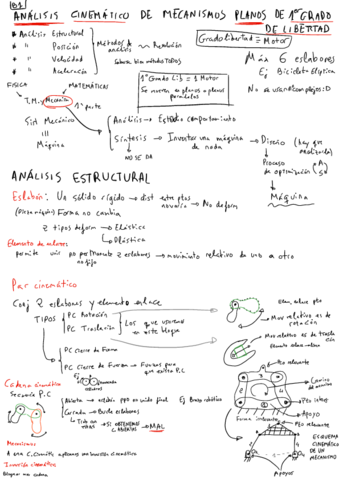 ANÁLISIS CINEMÁTICO DE MECANISMOS PLANOS DE 1º GRADO DE LIBERTAD
* Análisis Estructural
* " Posición
* " Velocidad
* " Aceleración
Métodos de análisis
Resolución
Saberse bien métodos TODOS
Grado libertad = Motor
Máx 6 eslabones
Ej Bicicleta elíptica
1º Grado Lib = 1 Motor
Se mueven en planos o planos paralelos
FÍSICA
MATEMÁTICAS
T.M. y Mecanis
1ª parte
Sist. Mecánico
III
Máquina
Análisis → Estudio comportamiento
Síntesis → Inventar una máquina de nada
NO SE DA
Diseño (hay que analizarlo)
Proceso de optimización
A
S
Máquina
ANÁLISIS ESTRUCTURAL
Eslabón: Un sólido rígido → dist entre ptos → No deform
Forma no cambia
2 tipos deform
Elástica
Plástica
Elemento de enlace
permite unir no permanente 2 eslabones → movimiento relativo de uno a otro
no fijo
Par cinemático
Conj 2 eslabones y elemento enlace
TIPOS
PC Rotación
PC Traslación
Los que usaremos en este bloque
PC Cierre de Forma
PC Cierre de Fuerza → Fuerzas para que exista P.C
Elem. enlace pto
Mov relativo es de rotación
Mov relativo es de traslación
Elemento enlace
Cadena cinemática
Secuencia P.C
Abierta → eslabón
Ej Brazo robótico
Cerrada → Bucle eslabones
→ SI OBTENEMOS C. ABIERTAS → MAL
Mecanismos
A una C. Cinemát, aplicamos una inversión cinemática
Inversión cinemática
Bloquear una cadena
Pto relevante
Apoyo
Pto relevante
ESQUEMA CINEMÁTICO DE UN MECANISMO
Apoyos